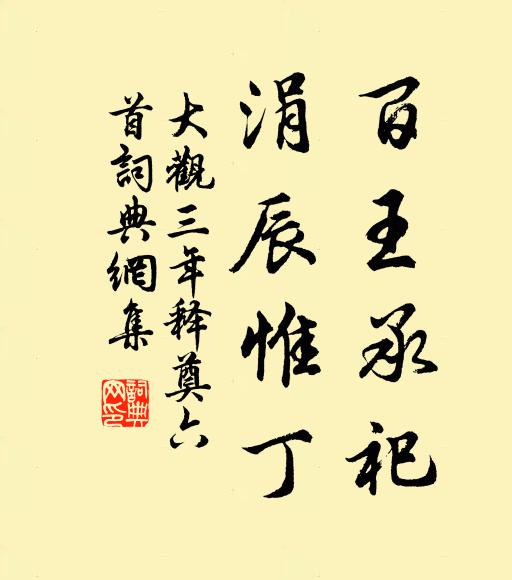 百王承祀
涓辰惟丁
大觀三年释奠六
首詞典網集
詞典
网印